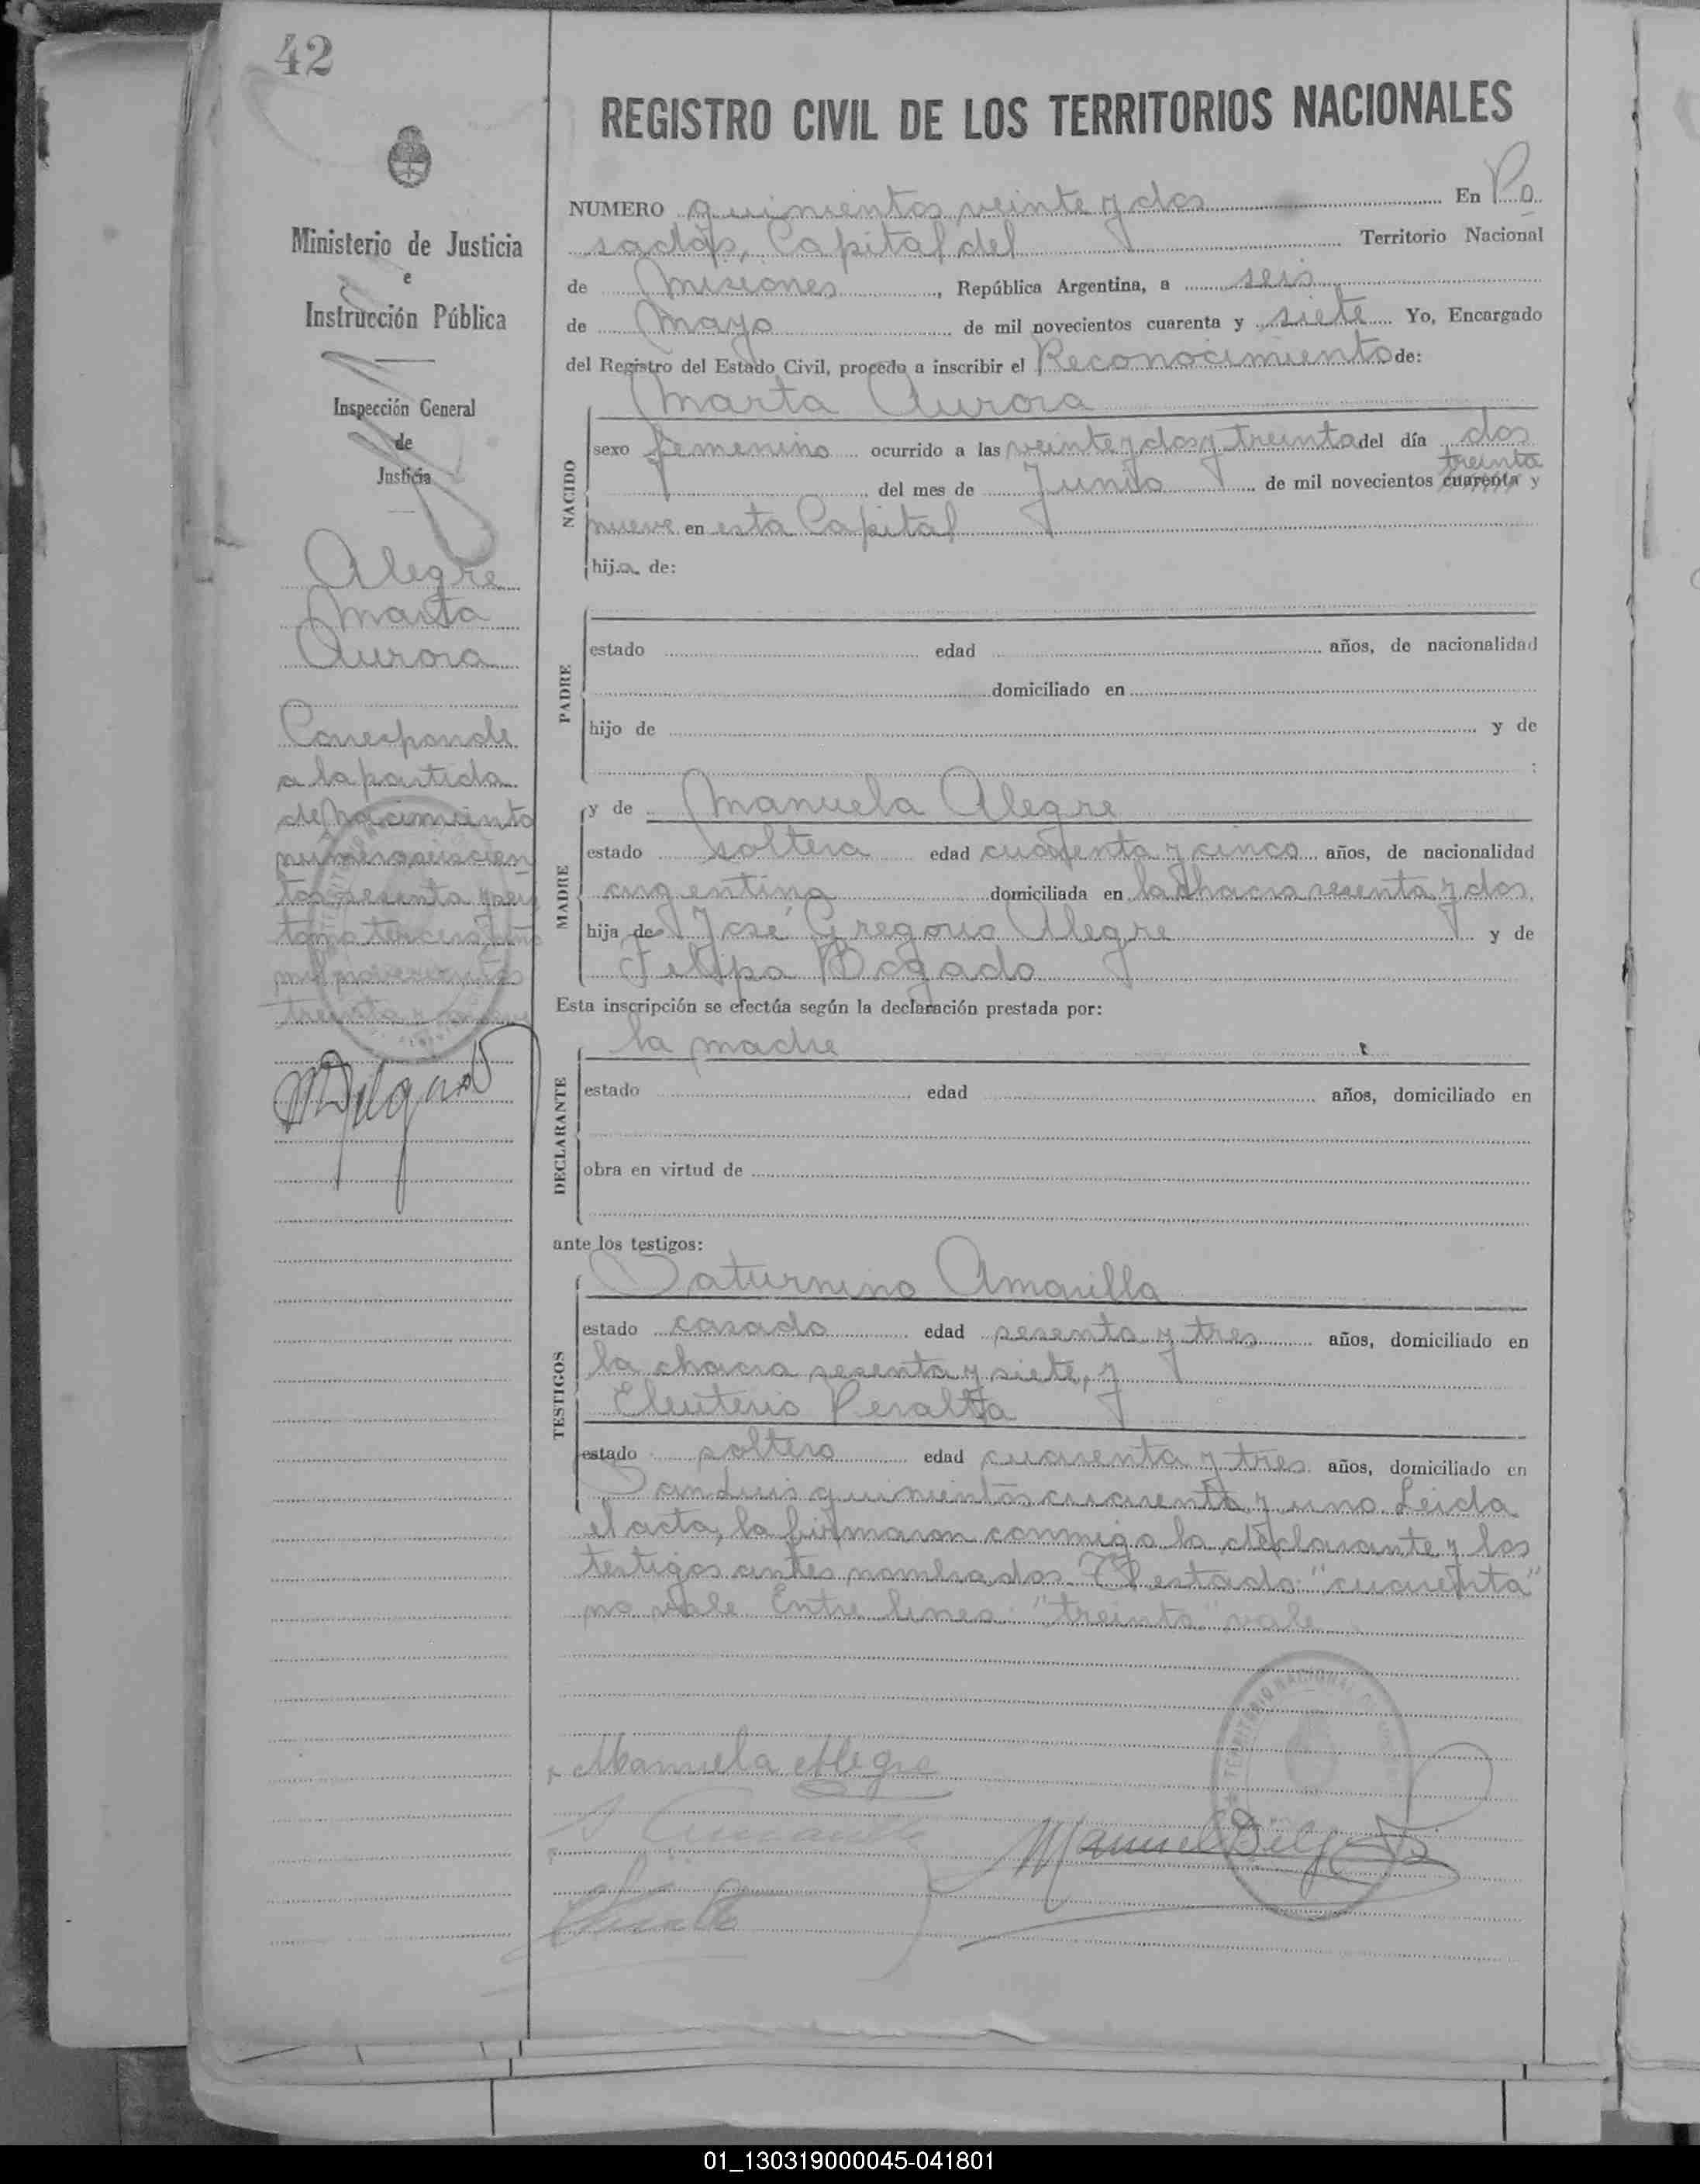 42
Ministerio de Justicia
e
Instrucción Pública
Inspección General
de
Justicia
Alegre
Marta
Aurora
Corresponde
a la partida
de nacimiento
numero seiscien
tos sesenta y seis
tomo tercero año
mil novecientos
treinta y nueve
REGISTRO CIVIL DE LOS TERRITORIOS NACIONALES
NUMERO quinientos veinte y dos En Po
sadas, Capital del Territorio Nacional
de Misiones, República Argentina, a seis
de Mayo de mil novecientos cuarenta y siete Yo, Encargado
del Registro del Estado Civil, procedo a inscribir el Reconocimiento de:
Marta Aurora
NACIDO
sexo femenino ocurrido a las veinte y dos y treinta del día dos
treinta
del mes de Junio de mil novecientos cuarenta y
nueve en esta Capital
hija de:
PADRE
estado edad años, de nacionalidad
domiciliado en
hijo de y de
:
MADRE
y de Manuela Alegre
estado soltera edad cuarenta y cinco años, de nacionalidad
argentina domiciliada en la chacra sesenta y dos
hija de José Gregorio Alegre y de
Felipa Bogado
Esta inscripción se efectúa según la declaración prestada por:
la madre
DECLARANTE
estado edad años, domiciliado en
obra en virtud de
ante los testigos:
TESTIGOS
Saturnino Amarilla
estado casado edad sesenta y tres años, domiciliado en
la chacra sesenta y siete, y
Eleuterio Peralta
estado soltero edad cuarenta y tres años, domiciliado en
San Luis quinientos cuarenta y uno. Leida
el acta, la firmaron conmigo la declarante y los
testigos antes nombrados. Testado: "cuarenta"
no vale. Entre linea: "treinta" vale
Manuela Alegre
S Amarilla
TERRITORIO NACIONAL
01_130319000045-041801